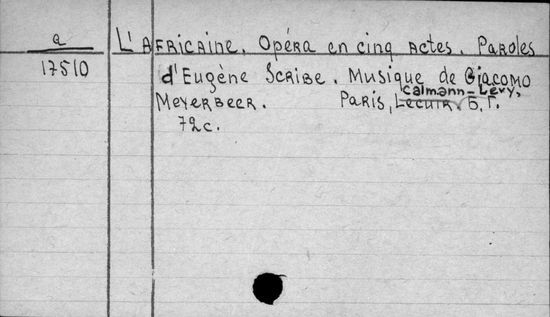 a
L'Africaine. Opéra en cinq actes. Paroles
17510
d'Eugène Scribe. Musique de Giacomo
Calmann-Lévy,
Meyerbeer. Paris, Б.Г.
72c.